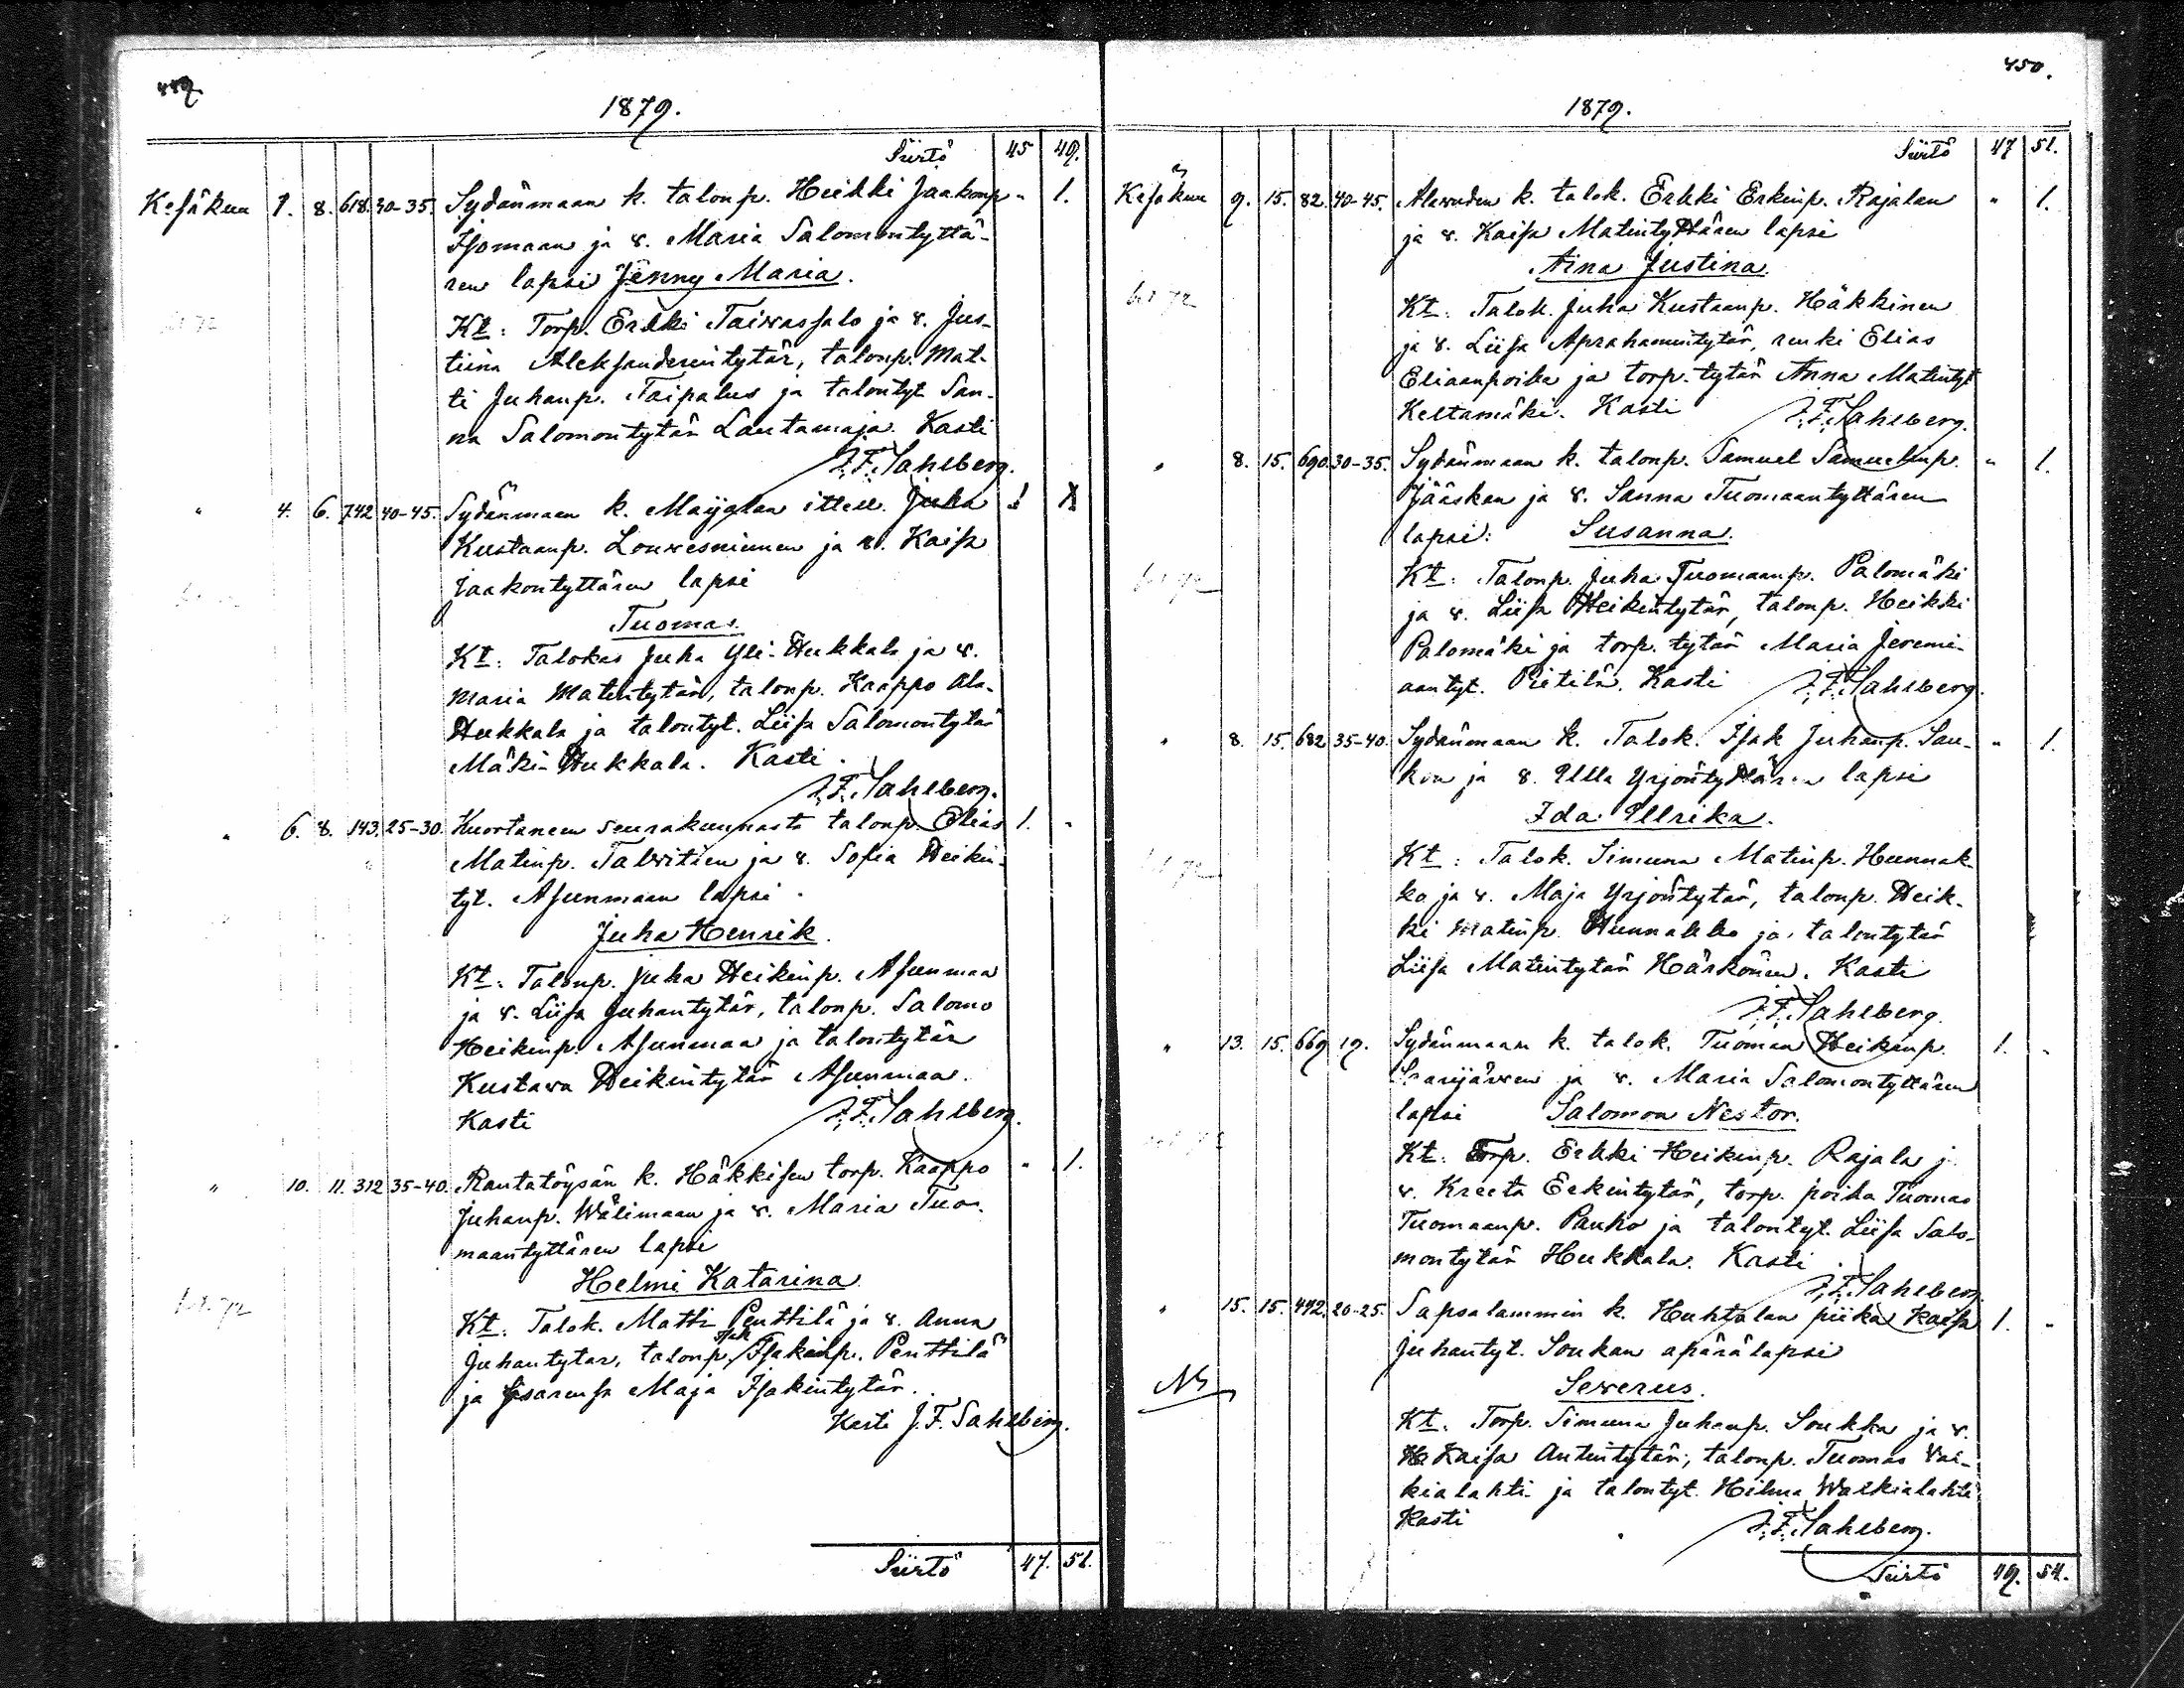 449.
1879.
Siirto 45 49.
Kesäkuu 1. 8. 618. 30-35. Sydänmaan k. talonp. Heikki Jaakonp. " 1.
Isomaan ja v. Maria Salomontyttä-
ren lapsi Jenny Maria.
Kt: Torp. Erkki Taiwassalo ja v. Jus-
tiina Aleksanderintytär, talonp. Mat-
ti Juhanp. Taipalus ja talontyt. San-
na Salomontytär Lautamaja. Kasti
J.F. Sahlberg.
" 4. 6. 742 40-45. Sydänmaan k. itsell. Juha 1
Kustaanp. Louwesniemen ja v. Kaisa
Jaakontyttären lapsi
Tuomas.
Kt: Talokas Juha Yli-Hukkala ja v.
Maria Matintytär, talonp. Kaappo Ala-
Hukkala ja talontyt. Liisa Salomontytär
Mäki-Hukkala. Kasti.
J.F. Sahlberg.
" 6. 8. 143. 25-30. Kuortaneen seurakunnasta talonp. Elias 1. "
Matinp. Talwitien ja v. Sofia Heikin-
tyt. Asunmaan lapsi
Juha Henrik.
Kt: Talonp. Juha Heikinp. Asunmaa
ja v. Liisa Juhantytär, talonp. Salomo
Heikinp. Asunmaa ja talontytär
Kustawa Heikintytär Asunmaa.
Kasti J.F. Sahlberg.
" 10. 11. 312 35-40. Rantatöysän k. Häkkisen torp. Kaappo " 1.
Juhanp. Wälimaan ja v. Maria Tuo-
maantyttären lapsi
Helmi Katarina
Kt: Talok. Matti Penttilä ja v. Anna
Juhantytar, talonp. Isak Isakinp. Penttilä
ja sisarensa Maja Isakintytär.
Kasti J.F. Sahlberg.
Siirto 47. 51.
450.
1879.
Siirto 47 51.
Kesäkuu 9. 15. 82. 40-45. Alawuden k. talok. Erkki Erkinp. Rajalan " 1.
ja v. Kaisa Matintyttären lapsi
Aina Justina.
Kt: Talok. Juha Kustaanp. Häkkinen
ja v. Liisa Aprahamintytär, renki Elias
Eliaanpoika ja torp. tytär Anna Matintyt.
Keltamäki. Kasti J.F. Sahlberg.
" 8. 15. 690. 30-35. Sydänmaan k. talonp. Samuel Samuelinp. " 1.
Jääskan ja v. Sanna Tuomaantyttären
lapsi: Susanna.
Kt: Talonp. Juha Tuomaanp. Palomäki
ja v. Liisa Heikintytär, talonp. Heikki
Palomäki ja torp. tytär Maria Jeremi-
aantyt. Pietilä. Kasti J.F. Sahlberg.
" 8. 15. 682 35-40. Sydänmaan k. Talok. Isak Juhanp. Sau- " 1.
kon ja v. Ulla Yrjöntyttären lapsi
Ida Ullrika.
Kt: Talok. Simuna Matinp. Hunnak-
ko ja v. Maja Yrjöntytär, talonp. Heik-
ki Matinp. Hunnakko ja talontytär
Liisa Matintytär Härkönen. Kasti
J.F. Sahlberg.
" 13. 15. 669 19. Sydänmaan k. talok. Tuomas Heikinp. 1. "
Saarijärwen ja v. Maria Salomontyttären
lapsi Salomon Nestor.
Kt: Torp. Erkki Heikinp. Rajala j.
v. Kreeta Erkintytär, torp. poika Tuomas
Tuomaanp. Panko ja talontyt. Liisa Salo-
montytär Hukkala. Kasti
J.F. Sahlberg.
" 15. 15. 442. 20-25. Sapsalammin k. Huhtalan piika Kaisa 1. "
Juhantyt. Soukan apärälapsi
Sewerus.
Kt: Torp. Simuna Juhanp. Soukka ja v.
Kaisa Antintytär, talonp. Tuomas Wal-
kialahti ja talontyt. Hilma Walkialahti
Kasti J.F. Sahlberg.
Siirto 49. 54.